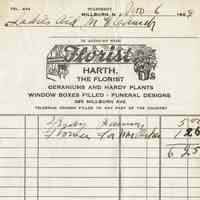 TEL. 644
MILLBURN, N. J. Nov 6 192
Ladies Aid M. E. Church
Florist
HARTH,
THE FLORIST
GERANIUMS AND HARDY PLANTS
WINDOW BOXES FILLED - FUNERAL DESIGNS
385 MILLBURN AVE.
TELEGRAM ORDERS FILLED TO ANY PART OF THE COUNTRY
5 00
Flowers for Mrs 1 25
6 25